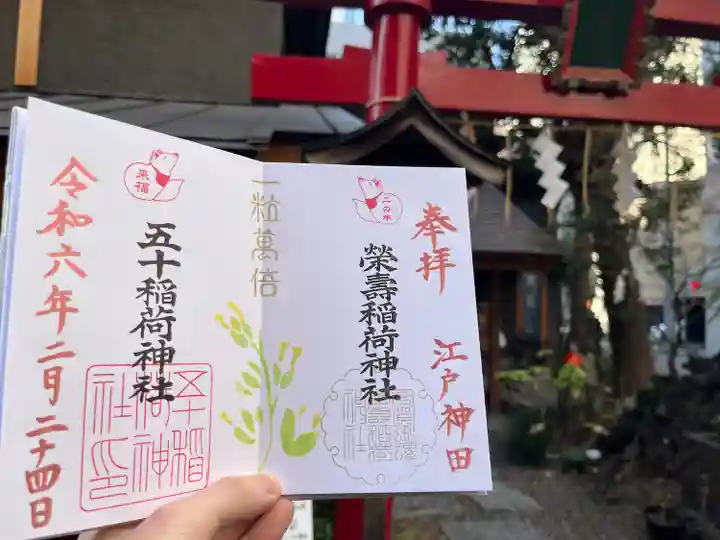 奉拝
江戸神田
二の午
榮壽稲荷神社
一粒萬倍
来福
五十稲荷神社
令和六年二月二十四日